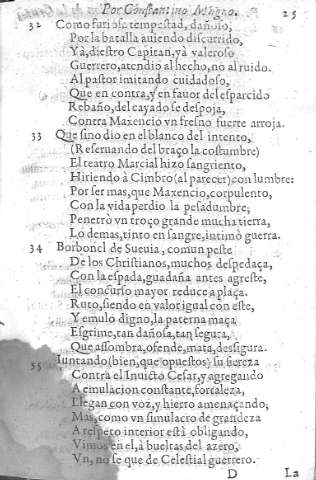 Por Constantino Magno. 25
32 Como furiosa tempestad, dañoso,
Por la batalla auiendo discurrido,
Yà, diestro Capitan, yà valeroso
Guerrero, atendio al hecho, no al ruido.
Al pastor imitando cuidadoso,
Que en contra, y en fauor del esparcido
Rebaño, del cayado se despoja,
Contra Maxencio vn fresno fuerte arroja.
33 Que sino dio en el blanco del intento,
(Reseruando del braço la costumbre)
El teatro Marcial hizo sangriento,
Hiriendo à Cimbro (al parecer) con lumbre:
Por ser mas, que Maxencio, corpulento,
Con la vida perdio la pesadumbre;
Penetrò vn troço grande mucha tierra,
Lo demas, tinto en sangre, intimò guerra.
34 Borbonel de Sueuia, comun peste
De los Christianos, muchos despedaça,
Con la espada, guadaña antes agreste,
El concurso mayor reduce a plaça.
Ruto, siendo en valor igual con este,
Y emulo digno, la paterna maça
Esgrime, tan dañosa, tan segura,
Que assombra, ofende, mata, desfigura.
35 Iuntando (bien, que opuestos) su fiereza
Contra el Inuicto Cesar, y agregando
A emulacion constante, fortaleza,
Llegan con voz, y hierro amenaçando,
Mas, como vn simulacro de grandeza
A respeto interior està obligando,
Vimos en el, à bueltas del azero,
Vn, no se que de Celestial guerrero.
D La